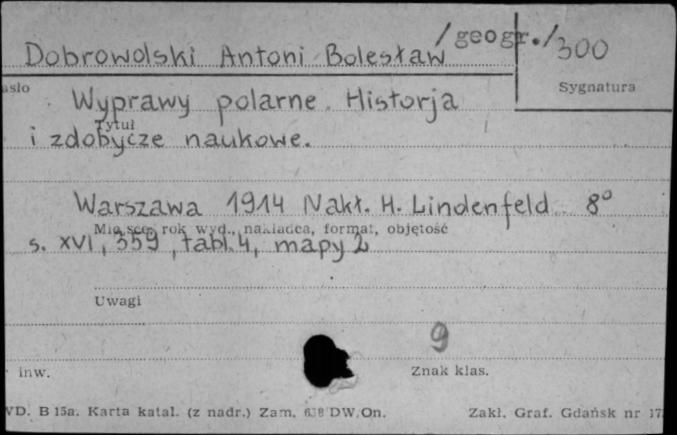 /geogr./
Dobrowolski Antoni Bolesław 300
asło Sygnatura
Wyprawy polarne. Historja
Tytuł
i zdobycze naukowe.
Warszawa 1914 Nakł. H. Lindenfeld 8°
Miejsce, rok wyd., nakładca, format, objętość
s. XVI, 359, tabl. 4, mapy 2
Uwagi
9
inw. Znak klas.
VD. B 15a. Karta katal. (z nadr.) Zam. 638 DW.On. Zakł. Graf. Gdańsk nr 17